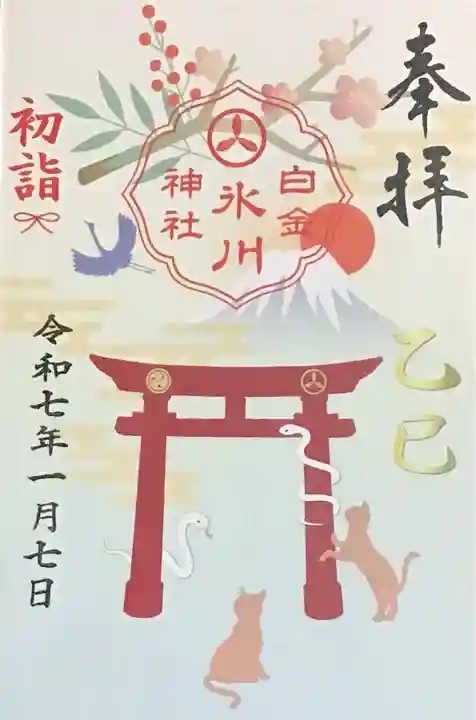 奉拝
乙巳
白金
氷川
神社
初詣
令和七年一月七日